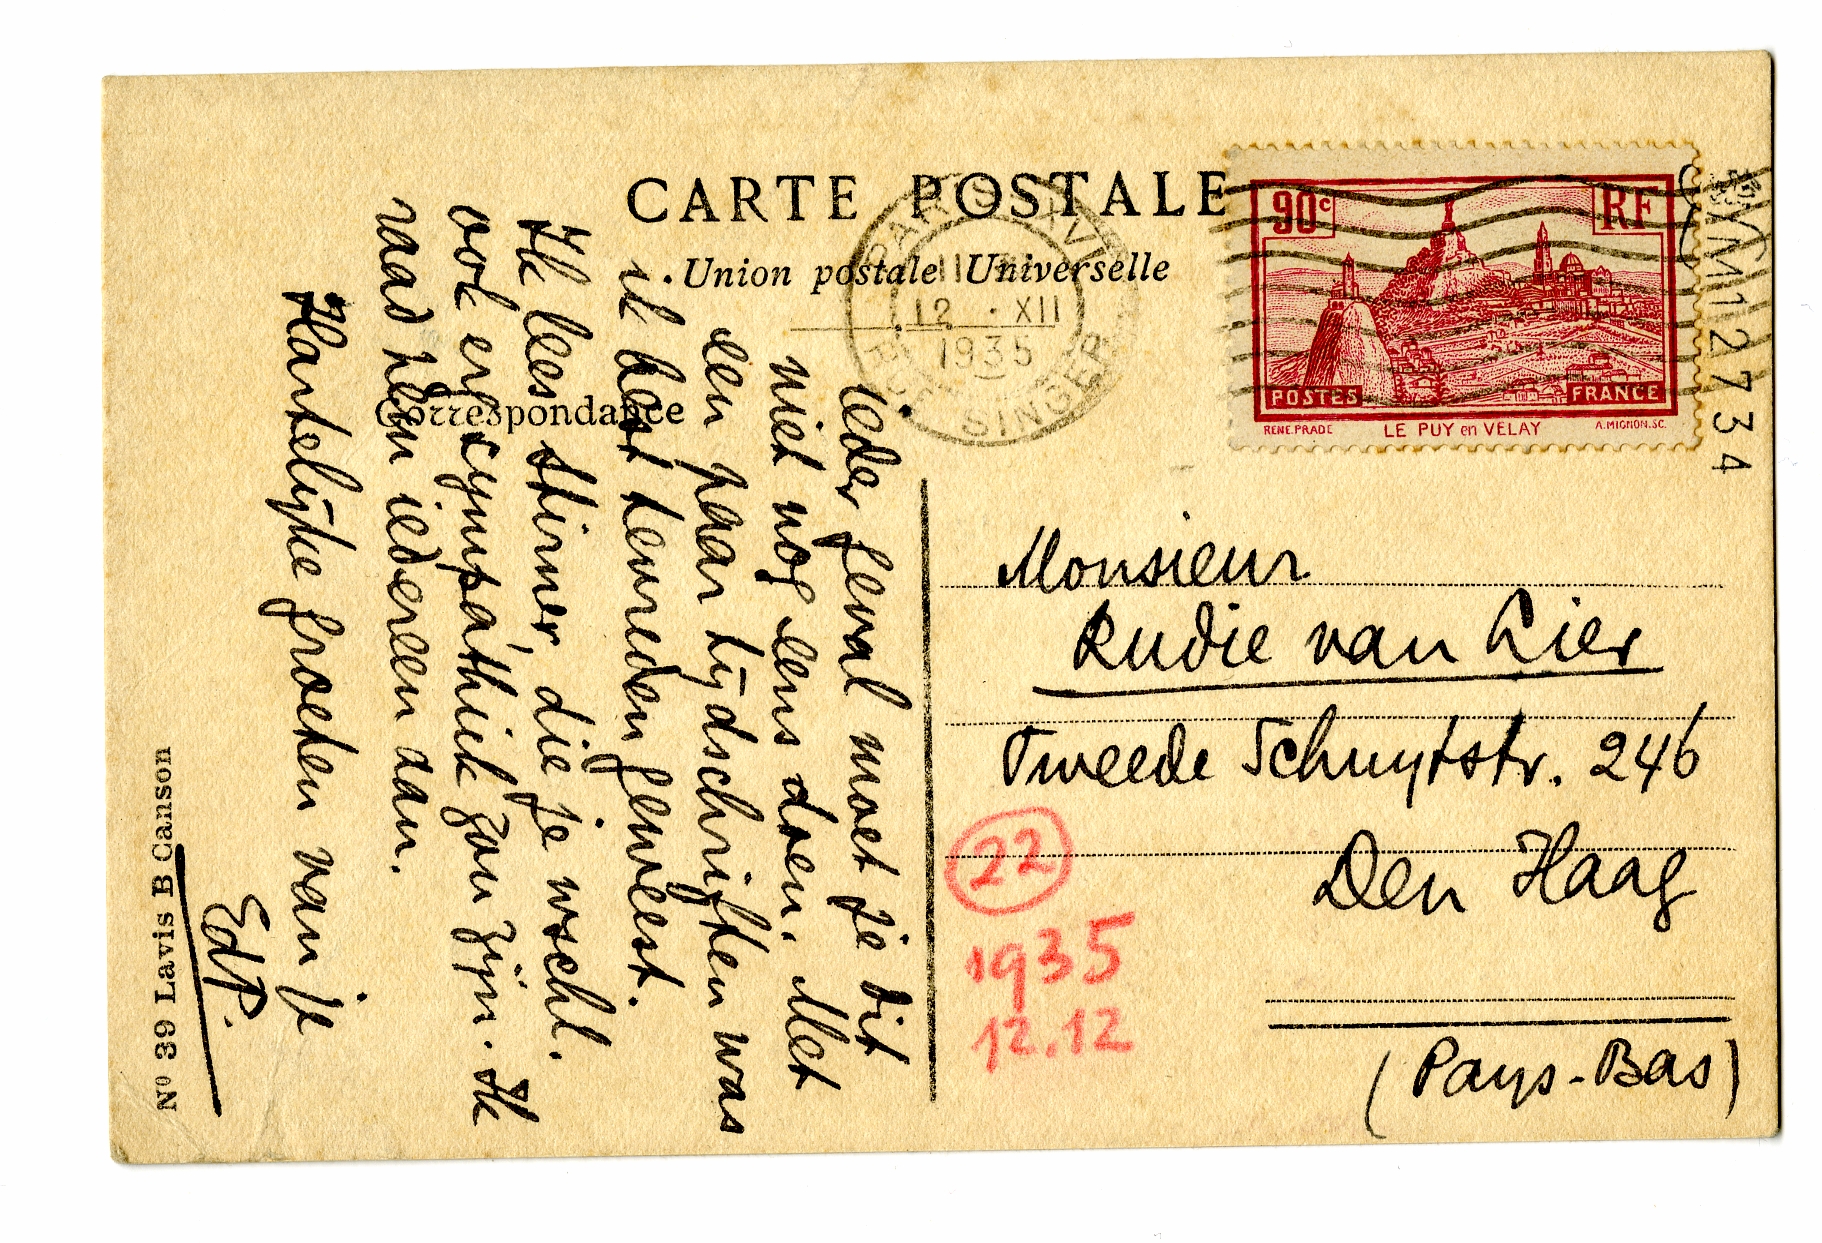 CARTE POSTALE
Union postale Universelle
Correspondance
ieder geval moet je dit
niet nog eens doen. Met
een paar tijdschriften was
ik best tevreden geweest.
Ik lees Stirner, die je wscht.
ook erg sympathiek zou zijn. Ik
raad hem iedereen aan.
Hartelijke groeten van je
EdP.
Nº 39 Lavis B Canson
PARIS
12 · XII
1935
SINGER
90c
RF
POSTES
FRANCE
RENE.PRADE
LE PUY en VELAY
A.MIGNON.SC.
12734
Monsieur
Rudie van Lier
Tweede Schuytstr. 246
Den Haag
(Pays-Bas)
22
1935
12.12